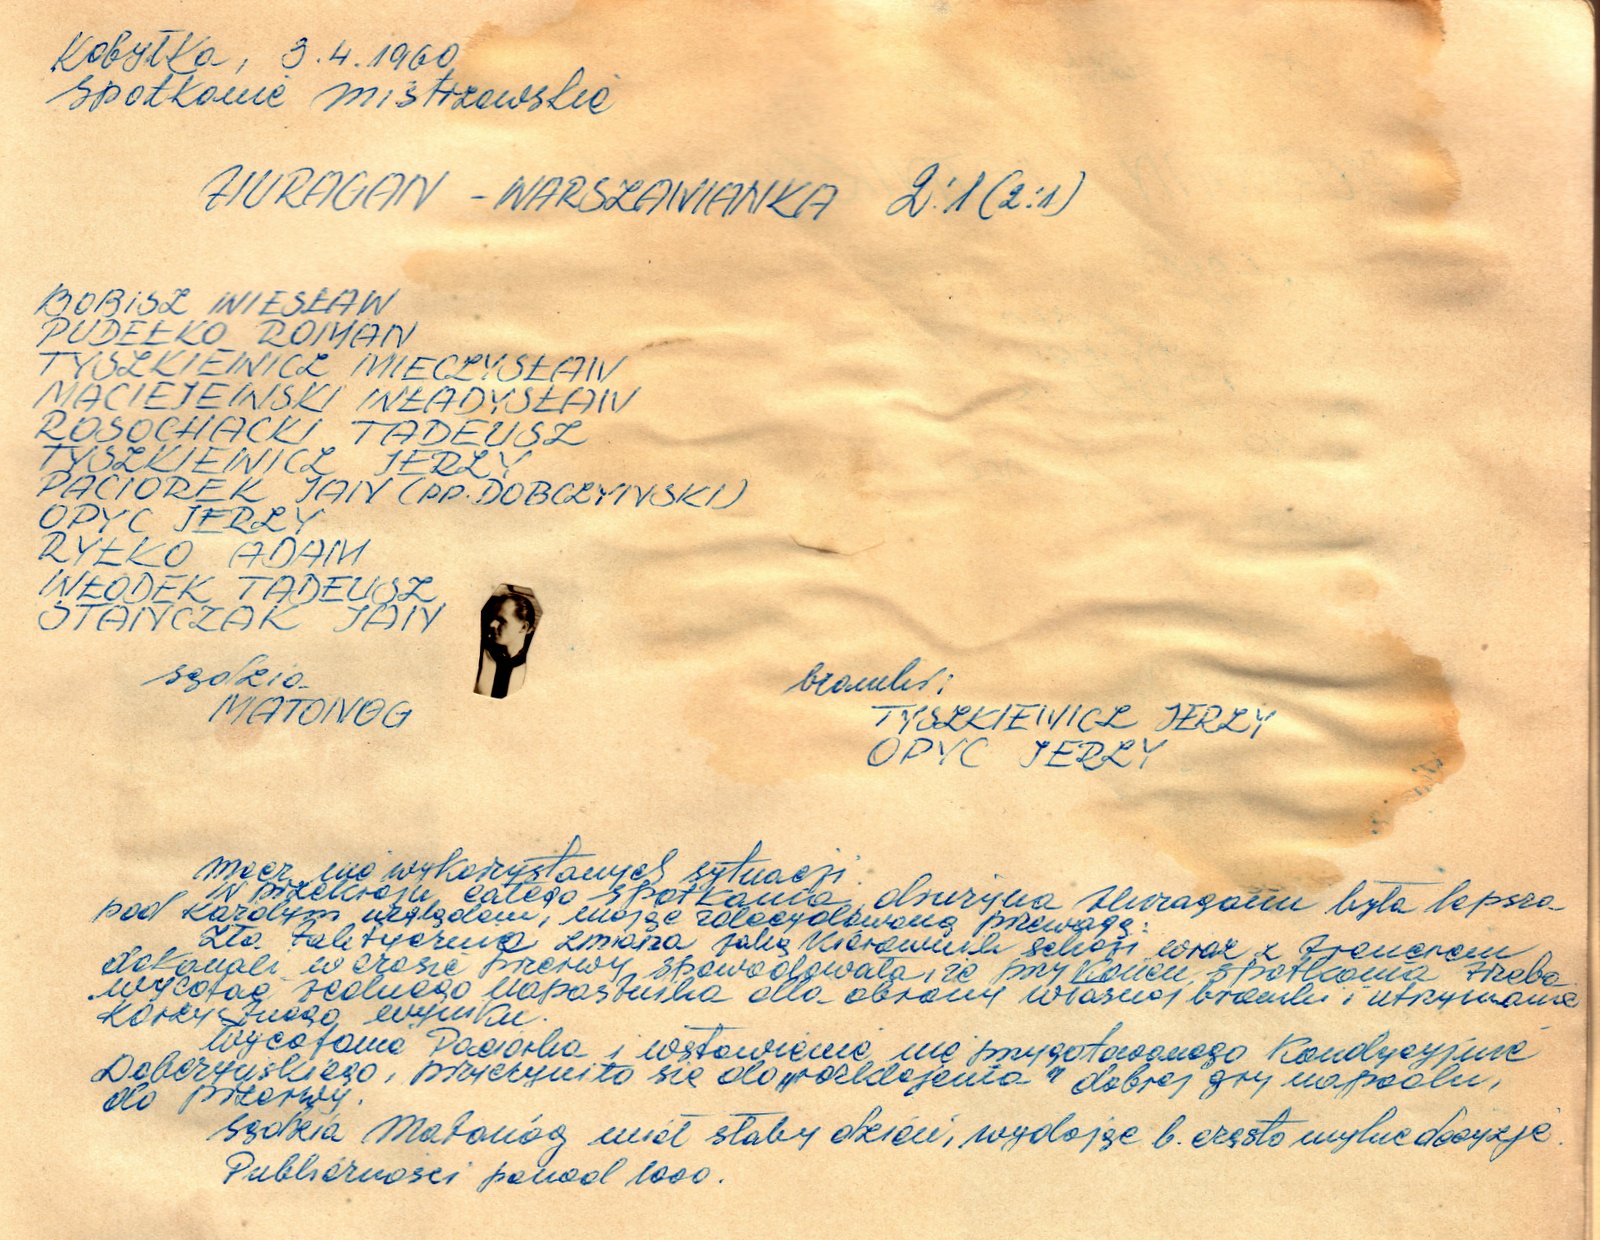 Kobyłka, 3.4.1960
Spotkanie mistrzowskie
HURAGAN - WARSZAWIANKA 2:1 (2:1)
BOBISZ WIESŁAW
PUDEŁKO ROMAN
TYSZKIEWICZ MIECZYSŁAW
MACIEJEWSKI WŁADYSŁAW
ROSOCHACKI TADEUSZ
TYSZKIEWICZ JERZY
PACIOREK JAN (PP. DOBCZYŃSKI)
OPYC JERZY
RYŁKO ADAM
WŁODEK TADEUSZ
STAŃCZAK JAN
sędzia
MATONOG
bramki:
TYSZKIEWICZ JERZY
OPYC JERZY
Mecz nie wykorzystanych sytuacji.
W przekroju całego spotkania, drużyna Huraganu była lepsza
pod każdym względem, mając zdecydowaną przewagę.
Zła taktyczna zmiana jaką kierownik sekcji wraz z trenerem
dokonali w czasie przerwy spowodowała, że przy końcu spotkania trzeba
wycofać jednego napastnika dla obrony własnej bramki i utrzymania
korzystnego wyniku.
Wycofanie Paciorka i wstawienie nie przygotowanego kondycyjnie
Dobczyńskiego, przyczyniło się do „rozklejenia" dobrej gry napadu,
do przerwy.
Sędzia Matonóg miał słaby dzień, wydając b. często mylne decyzje.
Publiczności ponad 1000.